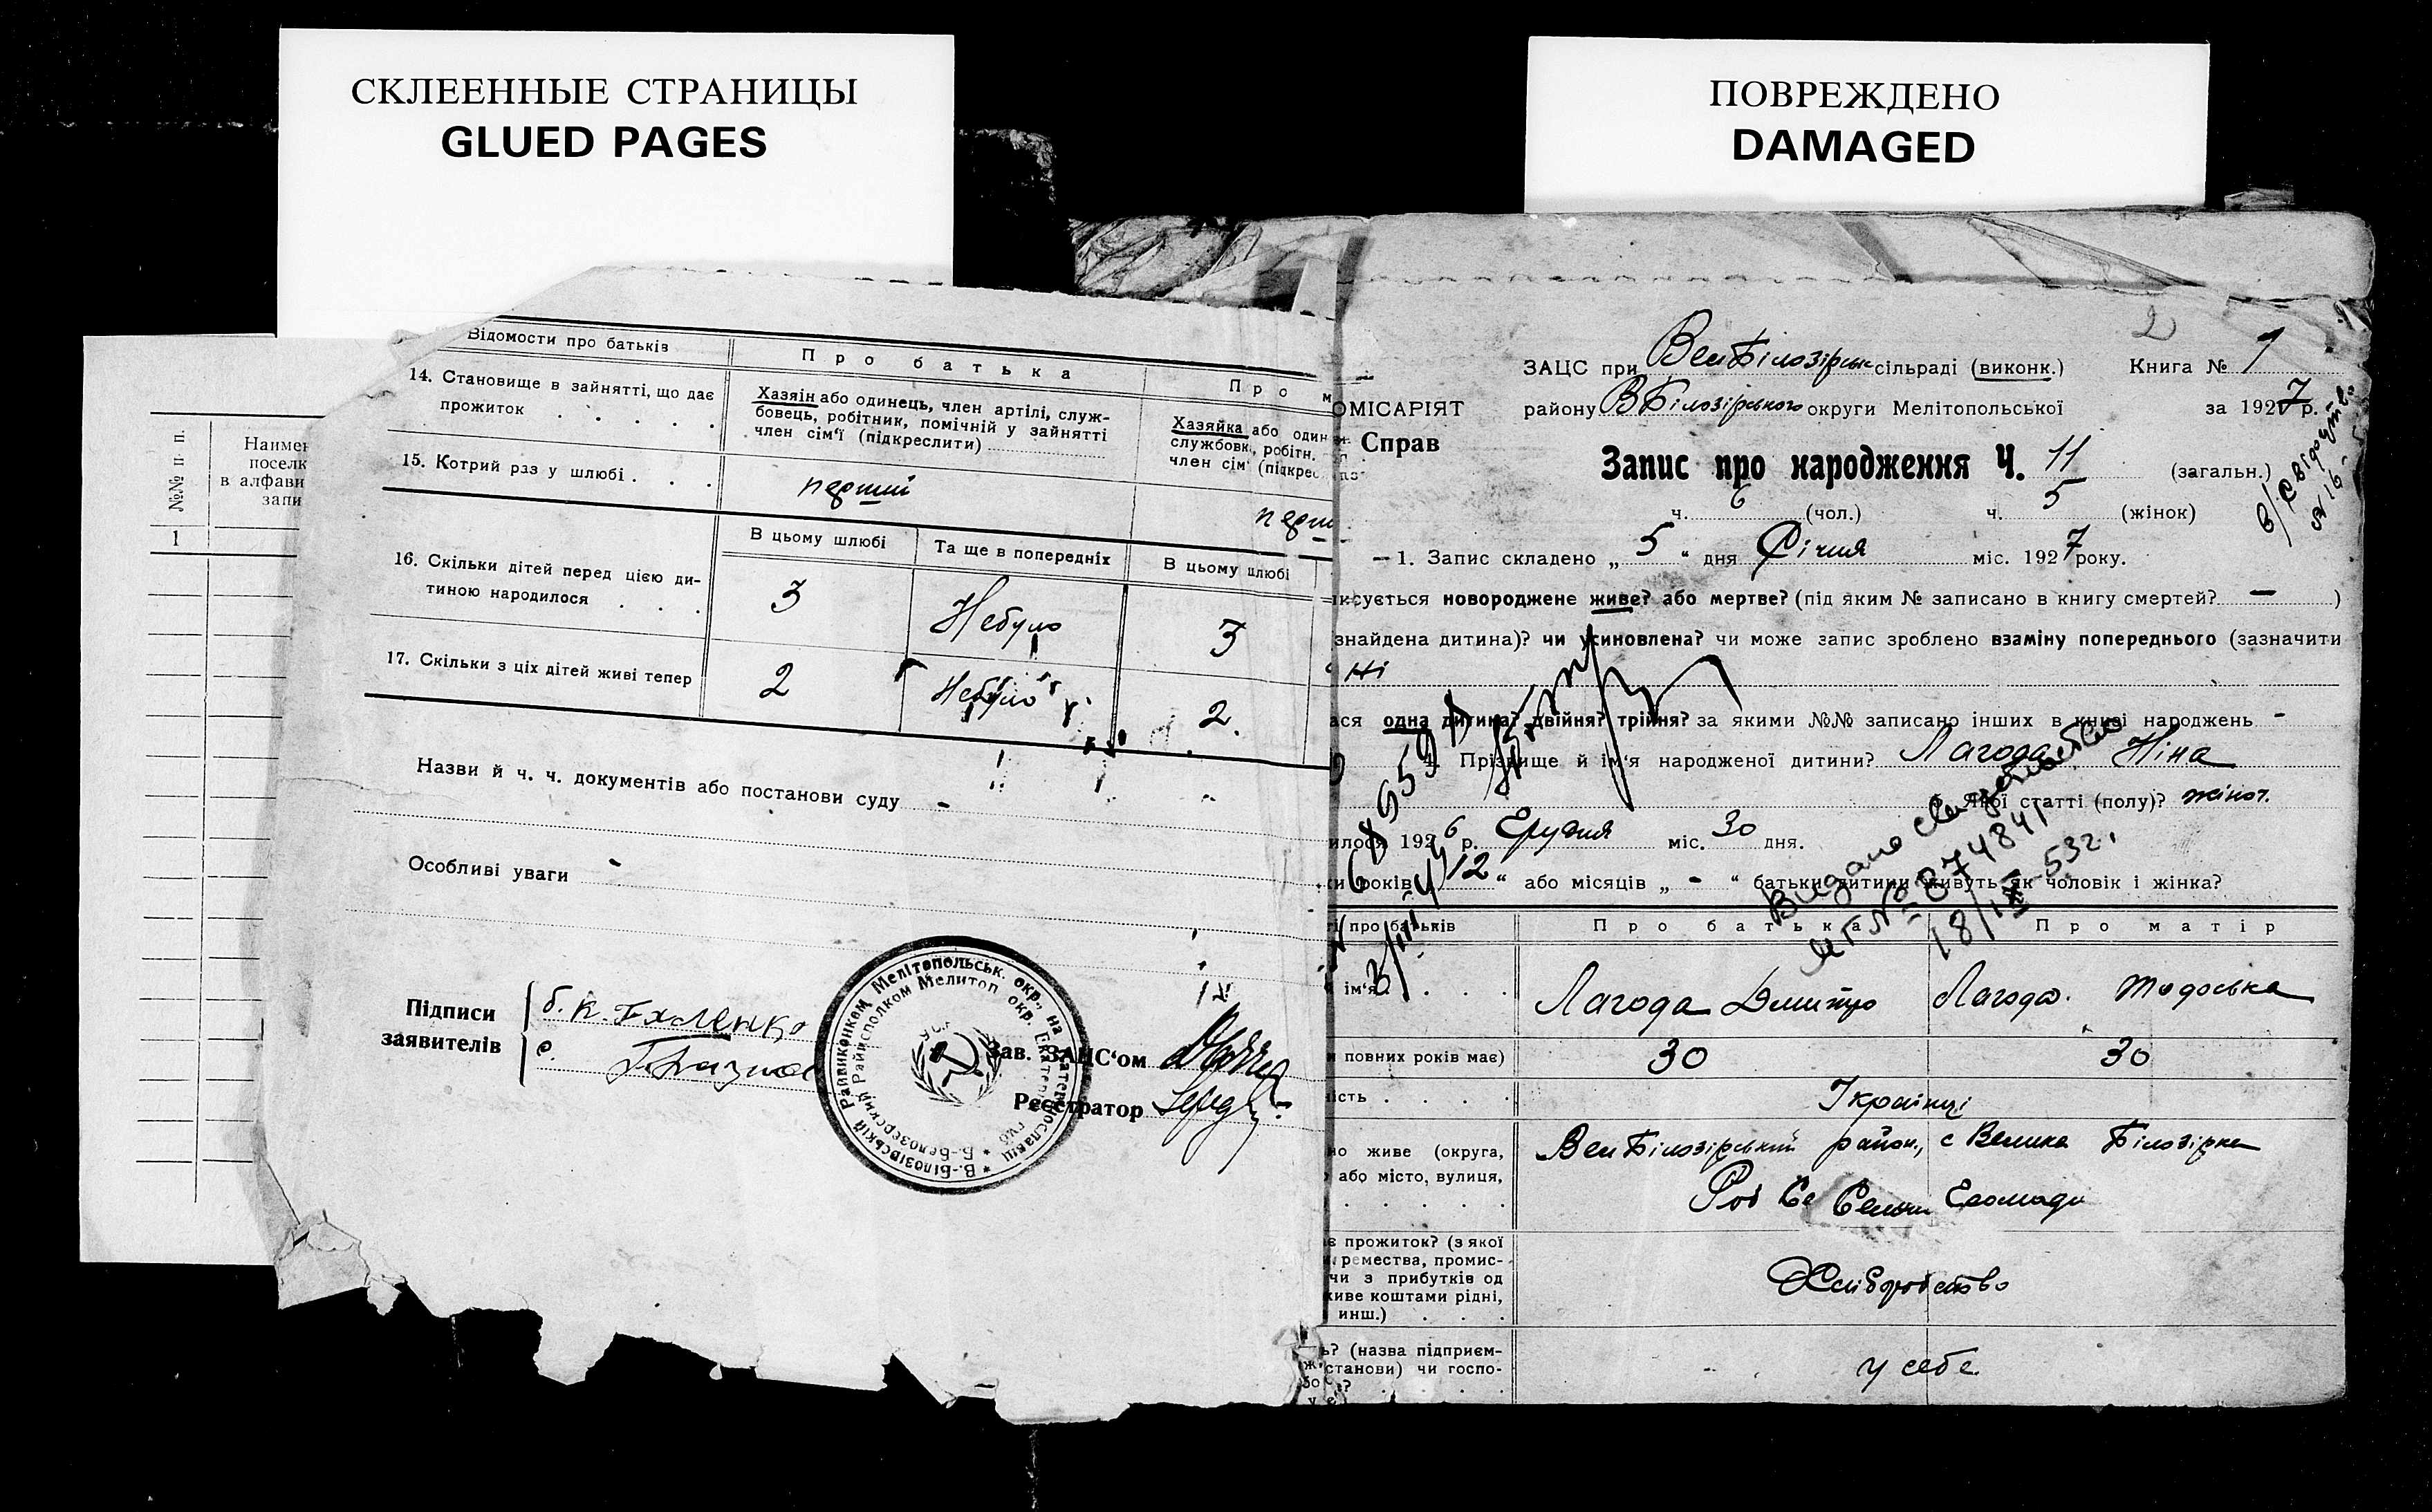 СКЛЕЕННЫЕ СТРАНИЦЫ
GLUED PAGES
ПОВРЕЖДЕНО
DAMAGED
№№ п п.
Наимен
поселк
в алфави
запи
1
Відомости про батьків
Про батька
Про м
14. Становище в зайнятті, що дає
прожиток . . . .
Хазяін або одинець, член артілі, служ-
бовець, робітник, помічній у зайнятті
член сім'ї (підкреслити)
Хазяйка або один
службовк, робітн.
член сім' (підкрес
15. Котрий раз у шлюбі . . .
перший
перш
В цьому шлюбі
Та ще в попередніх
В цьому шлюбі
16. Скільки дітей перед цією ди-
тиною народилося . . .
3
Небуло
3
17. Скільки з ціх дітей живі тепер
2
Небуло
2.
Назви й ч. ч. документів або постанови суду -
Особливі уваги -
Підписи
заявителів
Зав. ЗАЦС'ом
Реєстратор
В.-Білозірській Райвиконком Мелітопольськ. окр., на Катеринославщ
В-Белозерский Райисполком Мелитоп окр. Екатериносл губ
2
ЗАЦС при ВелБілозірськ сільраді (виконк.) Книга № 1
ОМІСАРІЯТ
району ВБілозірського округи Мелітопольської за 1927 р.
Справ
Запис про народження Ч. 11 (загальн.)
ч. 6 (чол.) ч. 5 (жінок)
— 1. Запис складено „ 5 " дня Січня міс. 1927 року.
ксується новороджене живе? або мертве? (під яким № записано в книгу смертей? — )
знайдена дитина)? чи усиновлена? чи може запис зроблено взаміну попереднього (зазначити
Ні
ася одна дитина? двійня? трійня? за якими №№ записано інших в книзі народжень -
4. Прізвище й ім'я народженої дитини? Лагода Ніна
Якої статті (полу)? жіноч.
илося 1926 р. Грудня міс. 30 дня.
ки років „ 12 " або місяців „ - " батьки дитини живуть як чоловік і жінка?
Видано свидетельство
№ 874841
18/IX-53г.
і про батьків
Про батька
Про матір
ім'я . . . .
Лагода Дмитро
Лагода Тодоська
и повних років має)
30
30
ість . . . .
Українці
но живе (округа,
або місто, вулиця,
ВелБілозірський район, с Велика Білозірка
Громади
є прожиток? (з якої
ремества, промис-
чи з прибутків од
живе коштами рідні,
инш.) . . .
Хліборобство
ь? (назва підприєм-
станови) чи госпо-
у себе